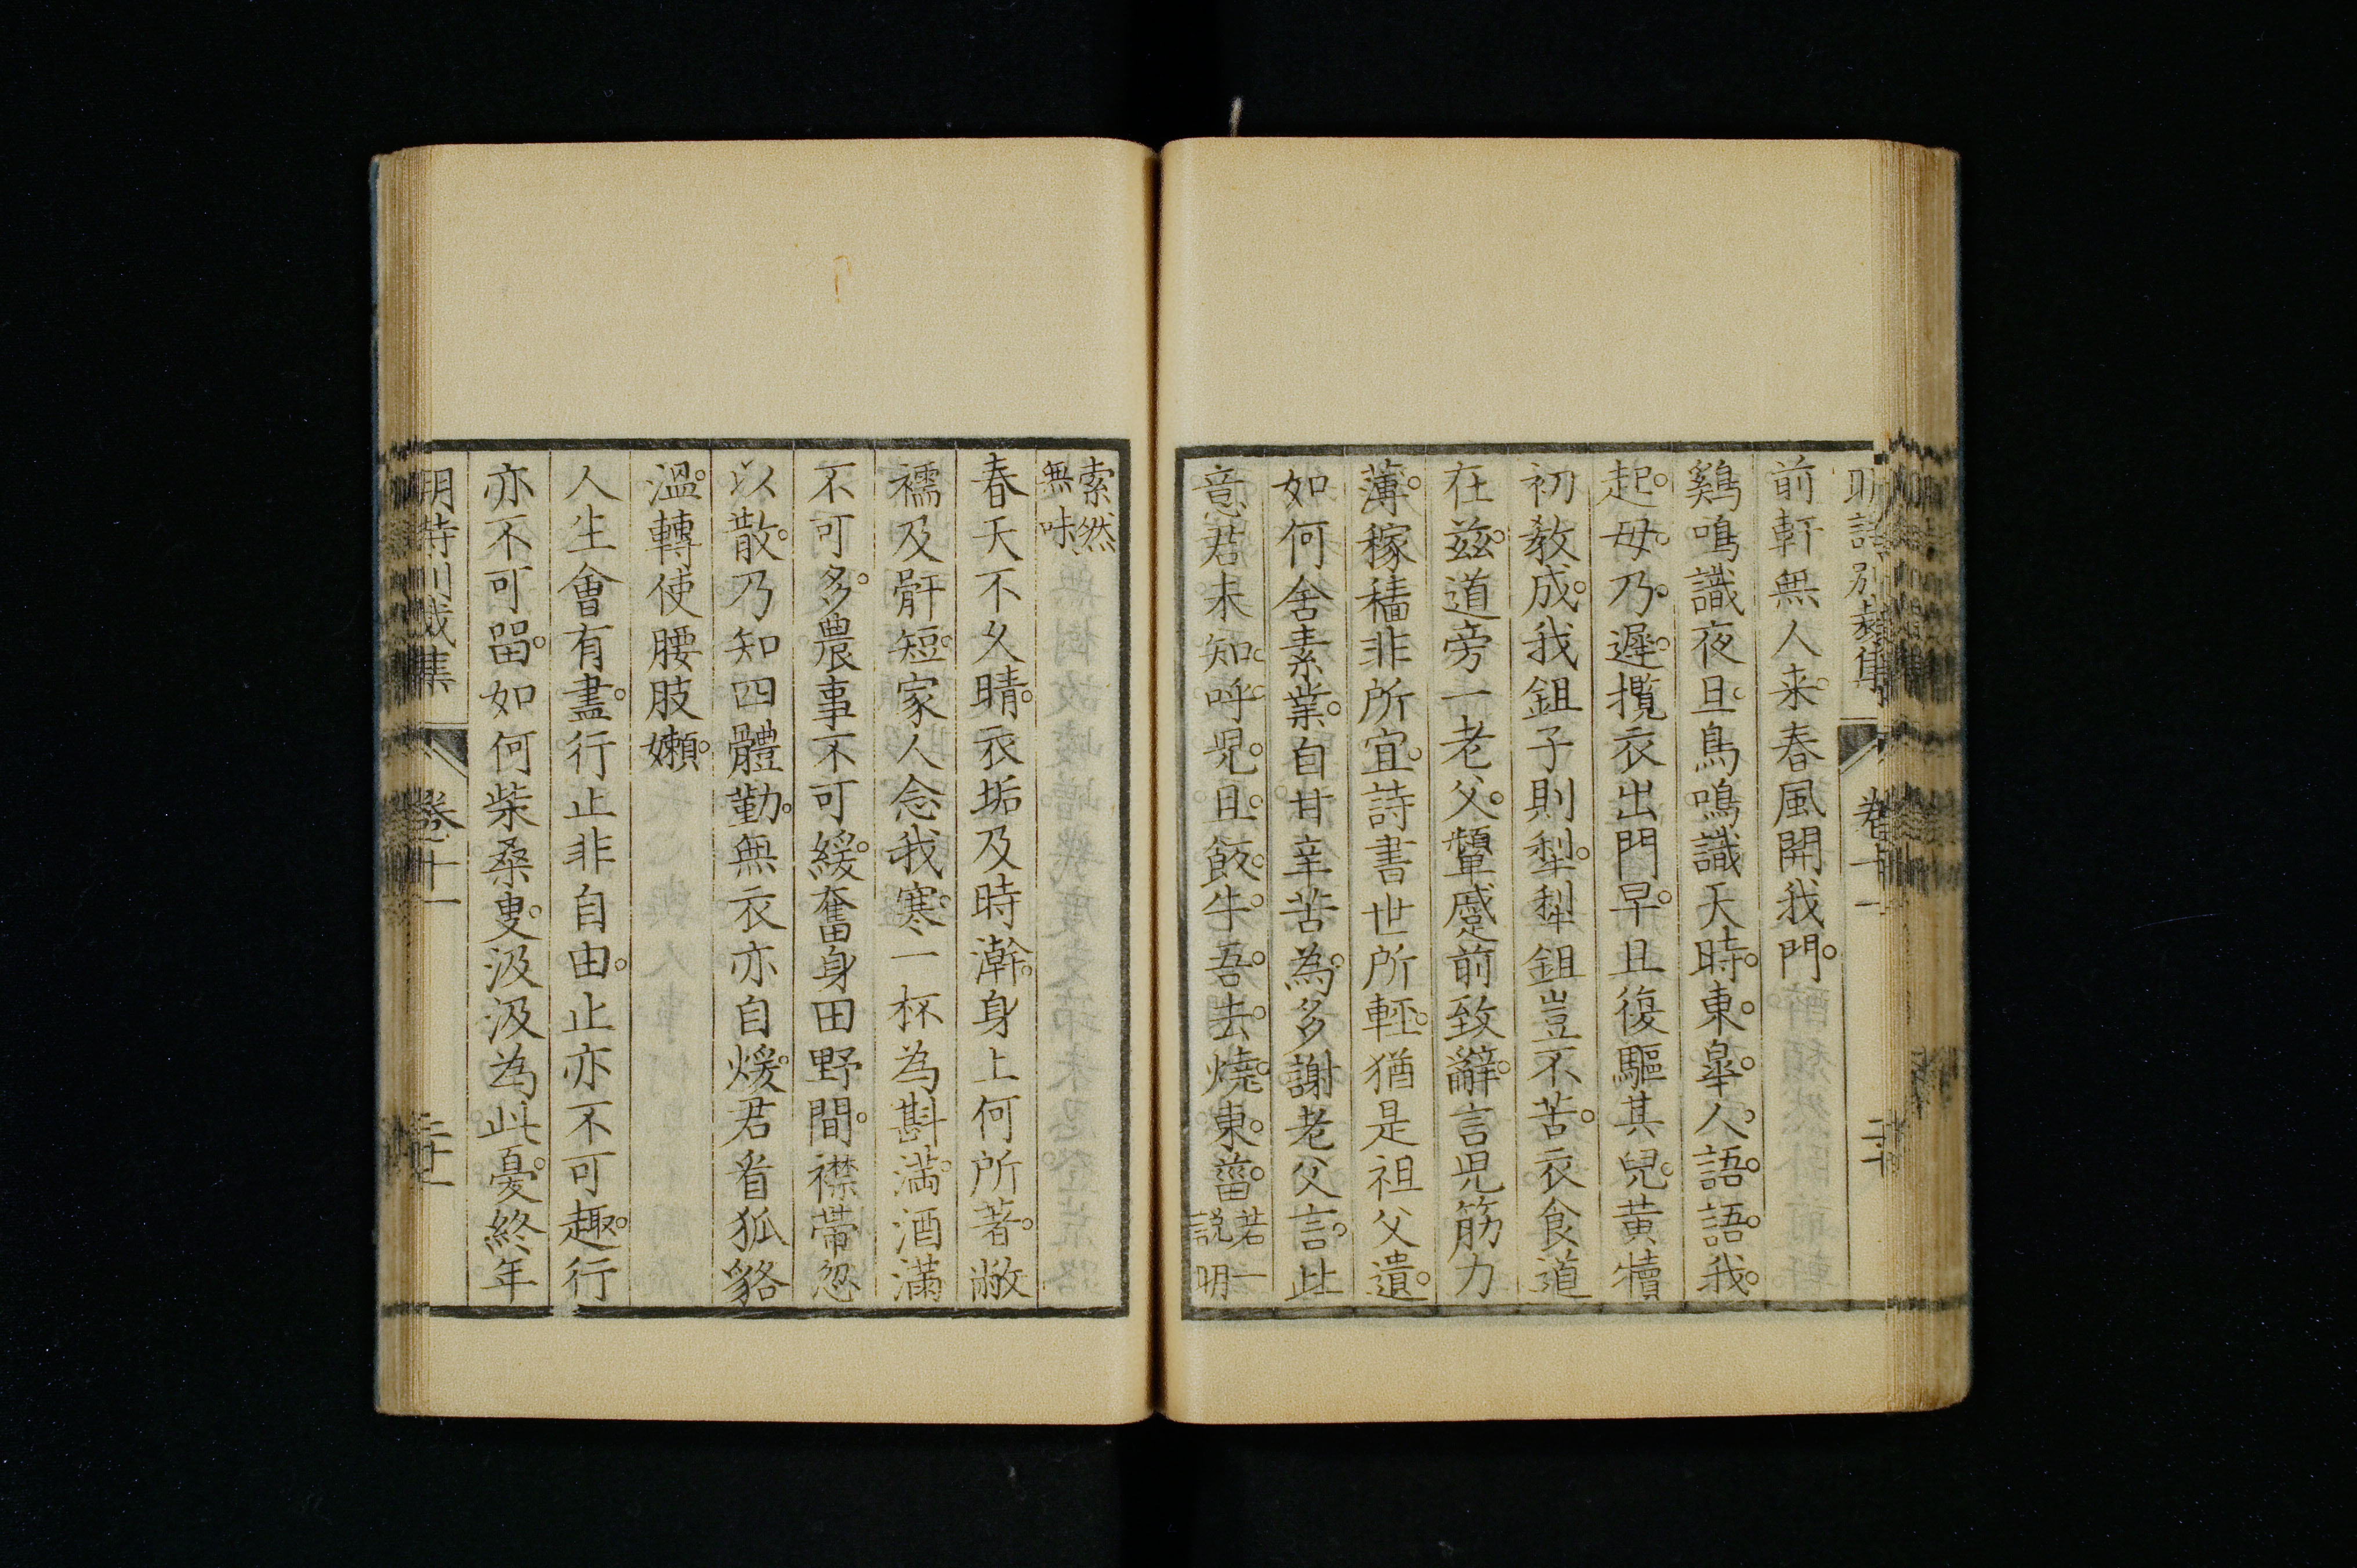 明詩別裁集 卷十一 二十
前軒無人来春風開我門
鷄鳴識夜旦鳥鳴識天時東皐人語語我
起毋乃遲攬衣出門早且復驅其兒黃犢
初教成我鉏子則犁犁鉏豈不苦衣食道
在茲道旁一老父顰蹙前致辭言兒筋力
薄稼穡非所宜詩書世所輕猶是祖父遺
如何舍素業自甘辛苦為多謝老父言此
意君未知呼児且飯牛吾去燒東菑若一
說明
索然
無味
春天不久晴衣垢及時澣身上何所著敝
襦及骭短家人念我寒一杯為斟滿酒滿
不可多農事不可緩奮身田野間襟帶忽
以散乃知四體勤無衣亦自煖君看狐貉
溫轉使腰肢嬾
人生會有盡行止非自由止亦不可趣行
亦不可畱如何柴桑叟汲汲為此憂終年
明詩別裁集 卷十一 二十一